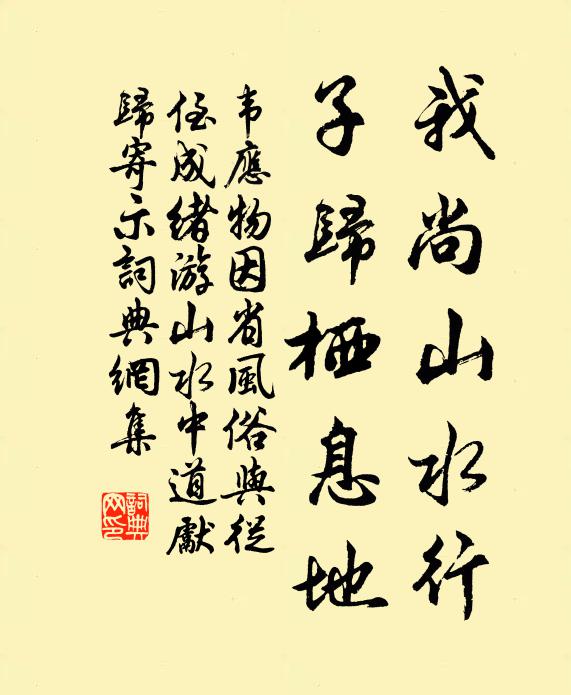 我尚山水行
子歸栖息地
韦應物因省風俗與從
侄成緒游山水中道獻
歸寄示詞典網集
詞典网印